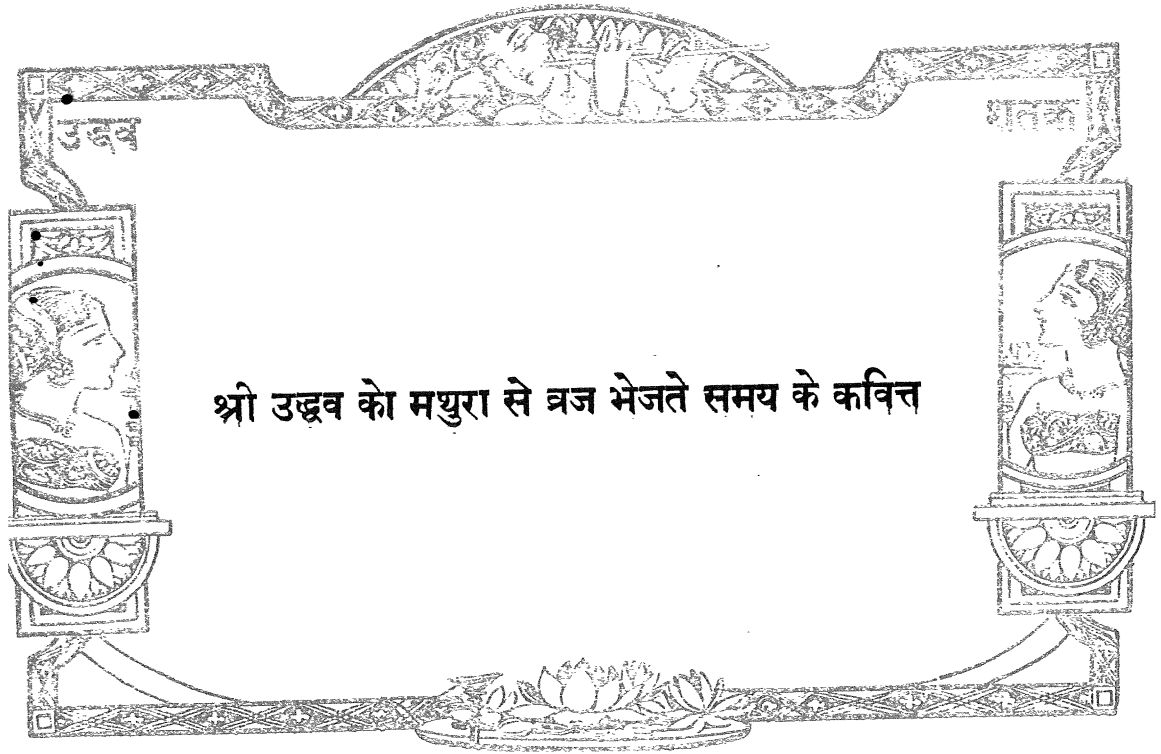 उद्धव
शतक
श्री उद्धव को मथुरा से व्रज भेजते समय के कवित्त